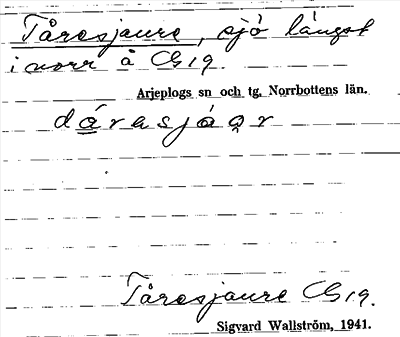 Tåresjaure, sjö längst
i norr å G 19.
Arjeplogs sn och tg. Norrbottens län.
dárasjáọr
Tåresjaure G 19.
Sigvard Wallström, 1941.